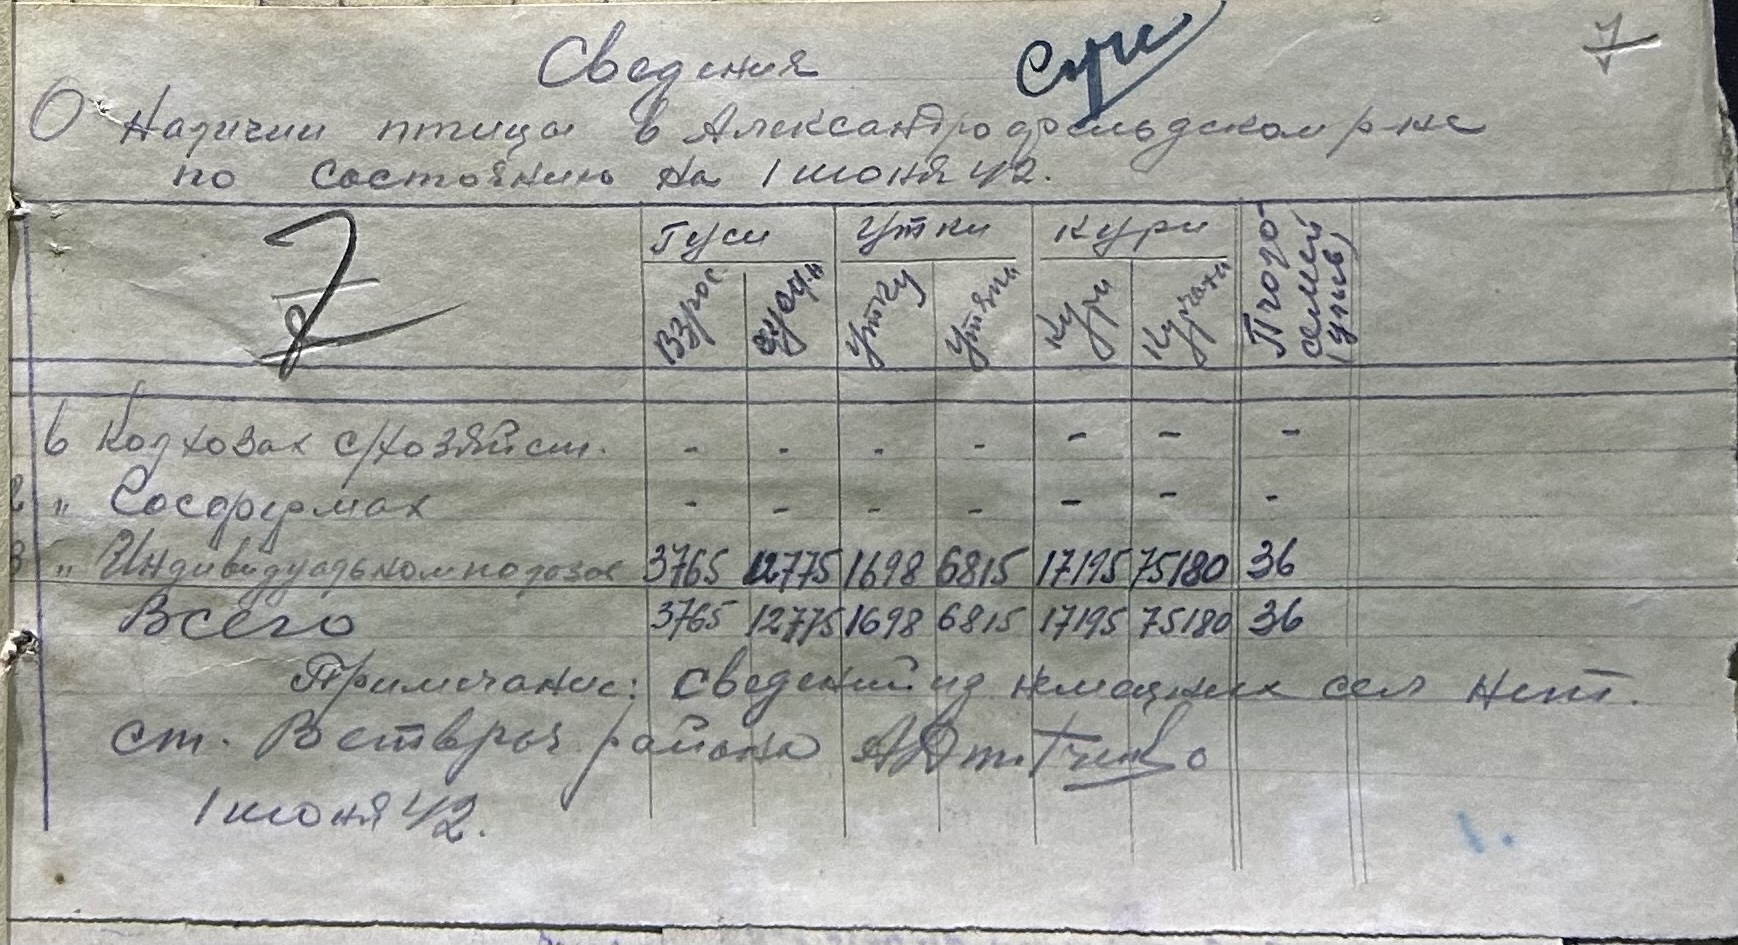 Сведения
7
О Наличии птицы в Александрофельдском р-не
по состоянию на 1 июня 42.
7
Гуси Утки Кури
Взрос. гусят. утку утята Кури Курчата Пчодо- семей (ульив)
в Колхозах с/хозяйст. - - - - - - -
2 " Сосфермах - - - - - - -
3 " Индивидуальном 3765 12775 1698 6815 17195 75180 36
Всего 3765 12775 1698 6815 17195 75180 36
Примечание: сведений из немецких сел нет.
ст. Ветврач района
1 июня 42.